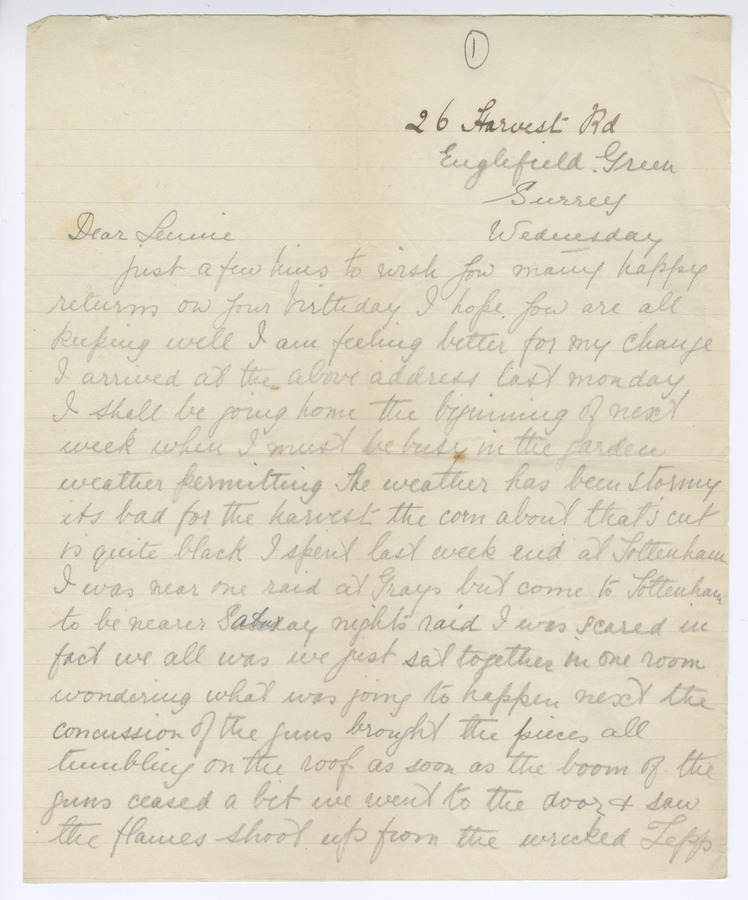 1
26 Harvest Rd
Englefield. Green
Surrey
Dear Lennie Wednesday
just a few lines to wish you many happy
returns on your birthday I hope you are all
keeping well I am feeling better for my change
I arrived at the above address last monday
I shall be going home the biginning of next
week when I must be busy in the garden
weather permitting The weather has been stormy
its bad for the harvest the corn about that's cut
is quite black I spent last week end at Tottenham
I was near one raid at Grays but come to Tottenham
to be nearer Saturday nights raid I was scared in
fact we all was we just sat together in one room
wondering what was going to happen next the
concussion of the guns brought the pieces all
tumbling on the roof as soon as the boom of the
guns ceased a bit we went to the door & saw
the flames shoot up from the wricked Zepp